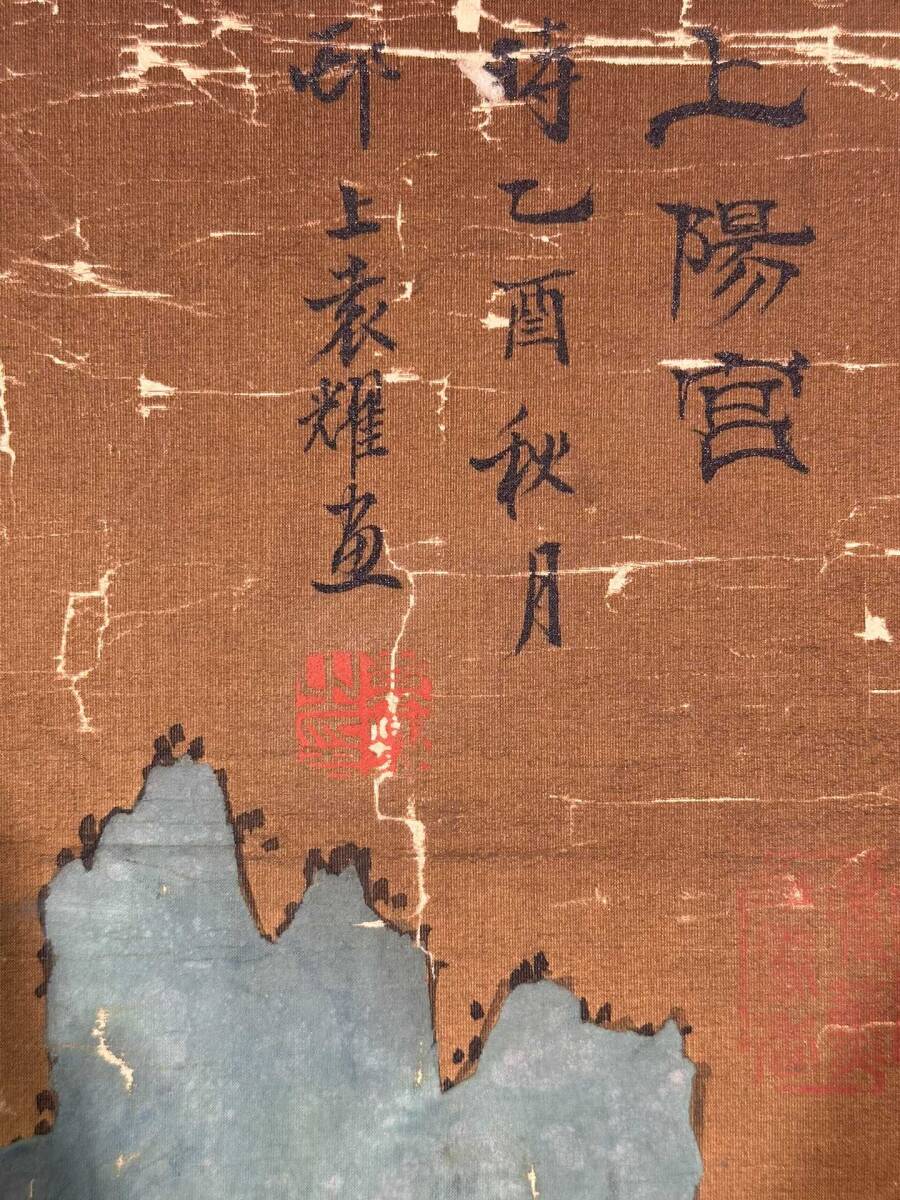 上陽宮
時乙酉秋月
邗上袁耀畫